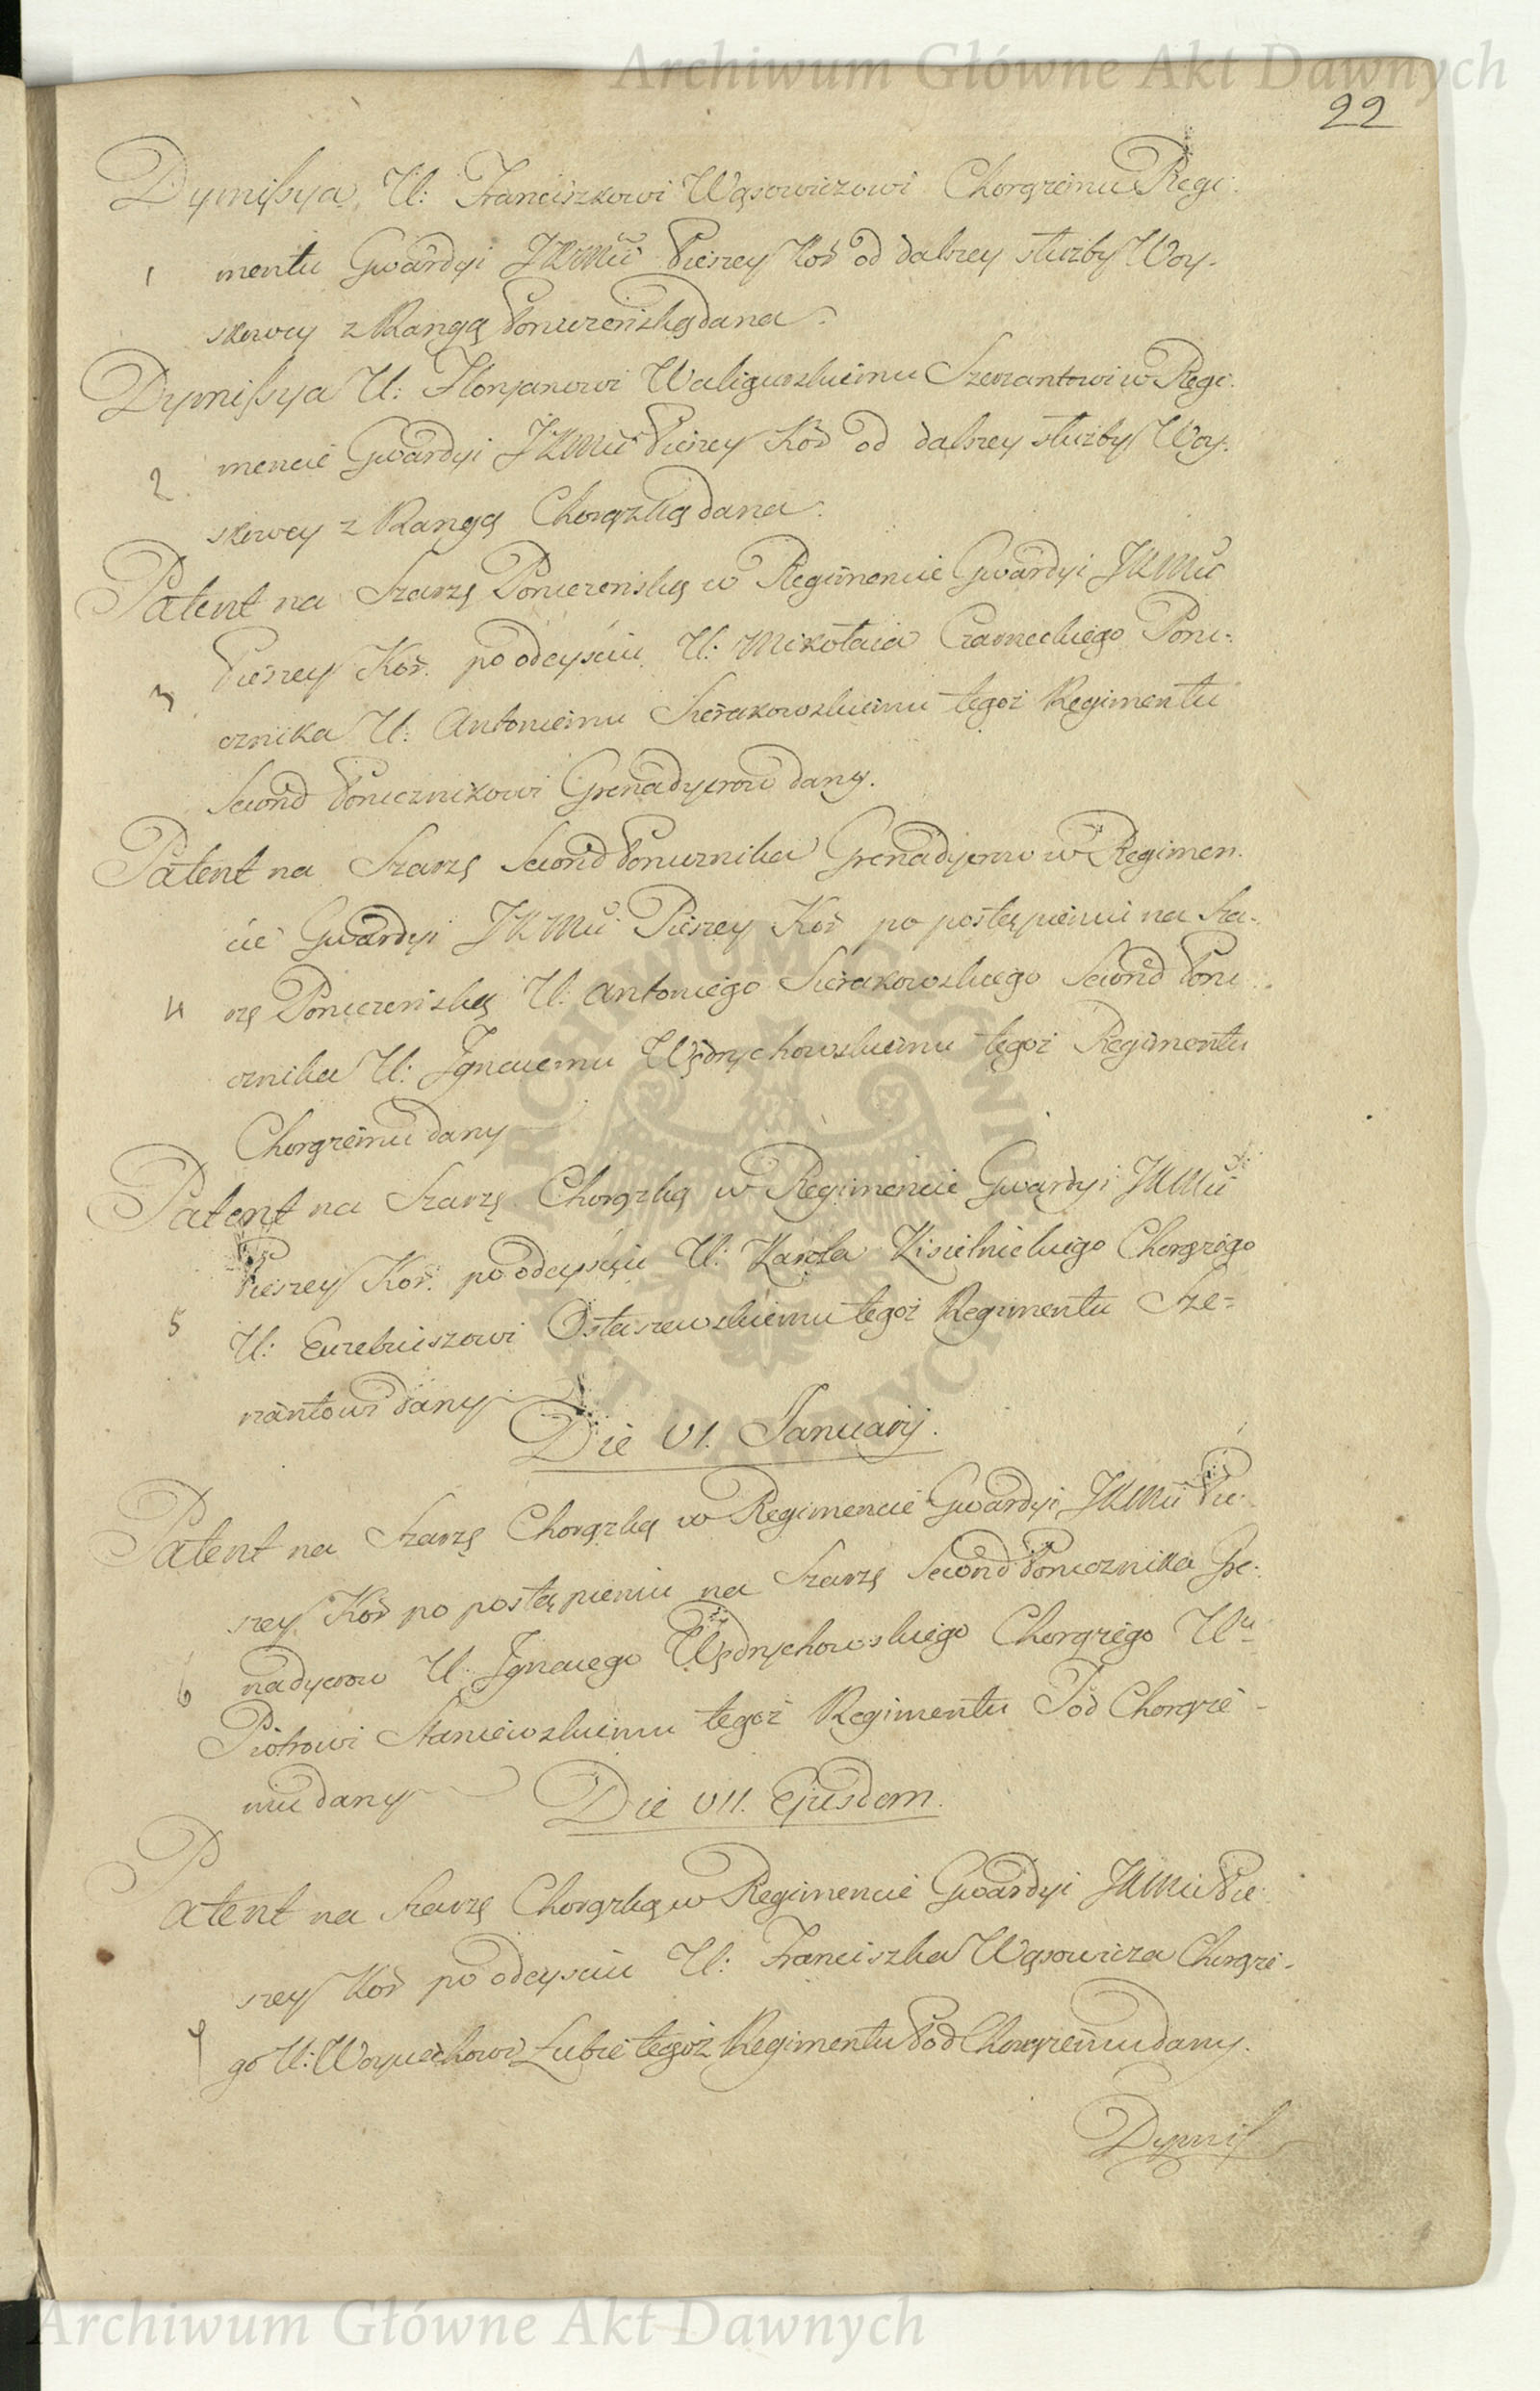 Archiwum Główne Akt Dawnych
22
Dymissya U: Franciszkowi Wąsowiczowi Chorążemu Regi:
1 mentu Gwardyi JKMci Pieszey Kor: od dalszey służby Woy-
skowey z Rangą Poruczeńską dana.
Dymissya U: Floryanowi Waligurskiemu Szerzantowi w Regi:
2 mencie Gwardyi JKMci Pieszey Kor: od dalszey służby Woy:
skowey z Rangą Chorążką dana.
Patent na Szarżę Poruczeńską w Regimencie Gwardyi JKMci
Pieszey Kor: po odeyściu U: Mikołaia Czarneckiego Poru:
3 cznika U: Antoniemu Sierakowskiemu tegoż Regimentu
Second Porucznikowi Grenadyerow dany.
Patent na Szarżę Second Porucznika Grenadyerow w Regimen:
cie Gwardyi JKMci Pieszey Kor: po postąpieniu na Sza:
4 rżę Poruczeńską U: Antoniego Sierakowskiego Second Poru:
cznika U: Ignacemu Wędrychowskiemu tegoż Regimentu
Chorążemu dany
Patent na Szarżę Chorążką w Regimencie Gwardyi JKMci
Pieszey Kor: po odeyściu U: Karola Kisielnickiego Chorążego
5 U: Euzebiuszowi Ostaszewskiemu tegoż Regimentu Sze=
rzantowi dany
Die VI. Januarij.
Patent na Szarżę Chorążką w Regimencie Gwardyi JKMci Pie:
szey Kor: po postąpieniu na Szarżę Second Porucznika Gre:
6 nadyerow U: Ignacego Wędrychowskiego Chorążego U:
Piotrowi Staniewskiemu tegoż Regimentu Pod Chorąże-
mu dany
Die VII. Ejusdem.
Patent na Szarżę Chorążką w Regimencie Gwardyi JKMci Pie:
szey Kor: po odeyściu U: Franciszka Wąsowicza Chorąże-
7 go U: Woyciechowi Łubie tegoż Regimentu Pod Chorążemu dany.
Dymis
ARCHIWUM GŁÓWNE AKT DAWNYCH
Archiwum Główne Akt Dawnych